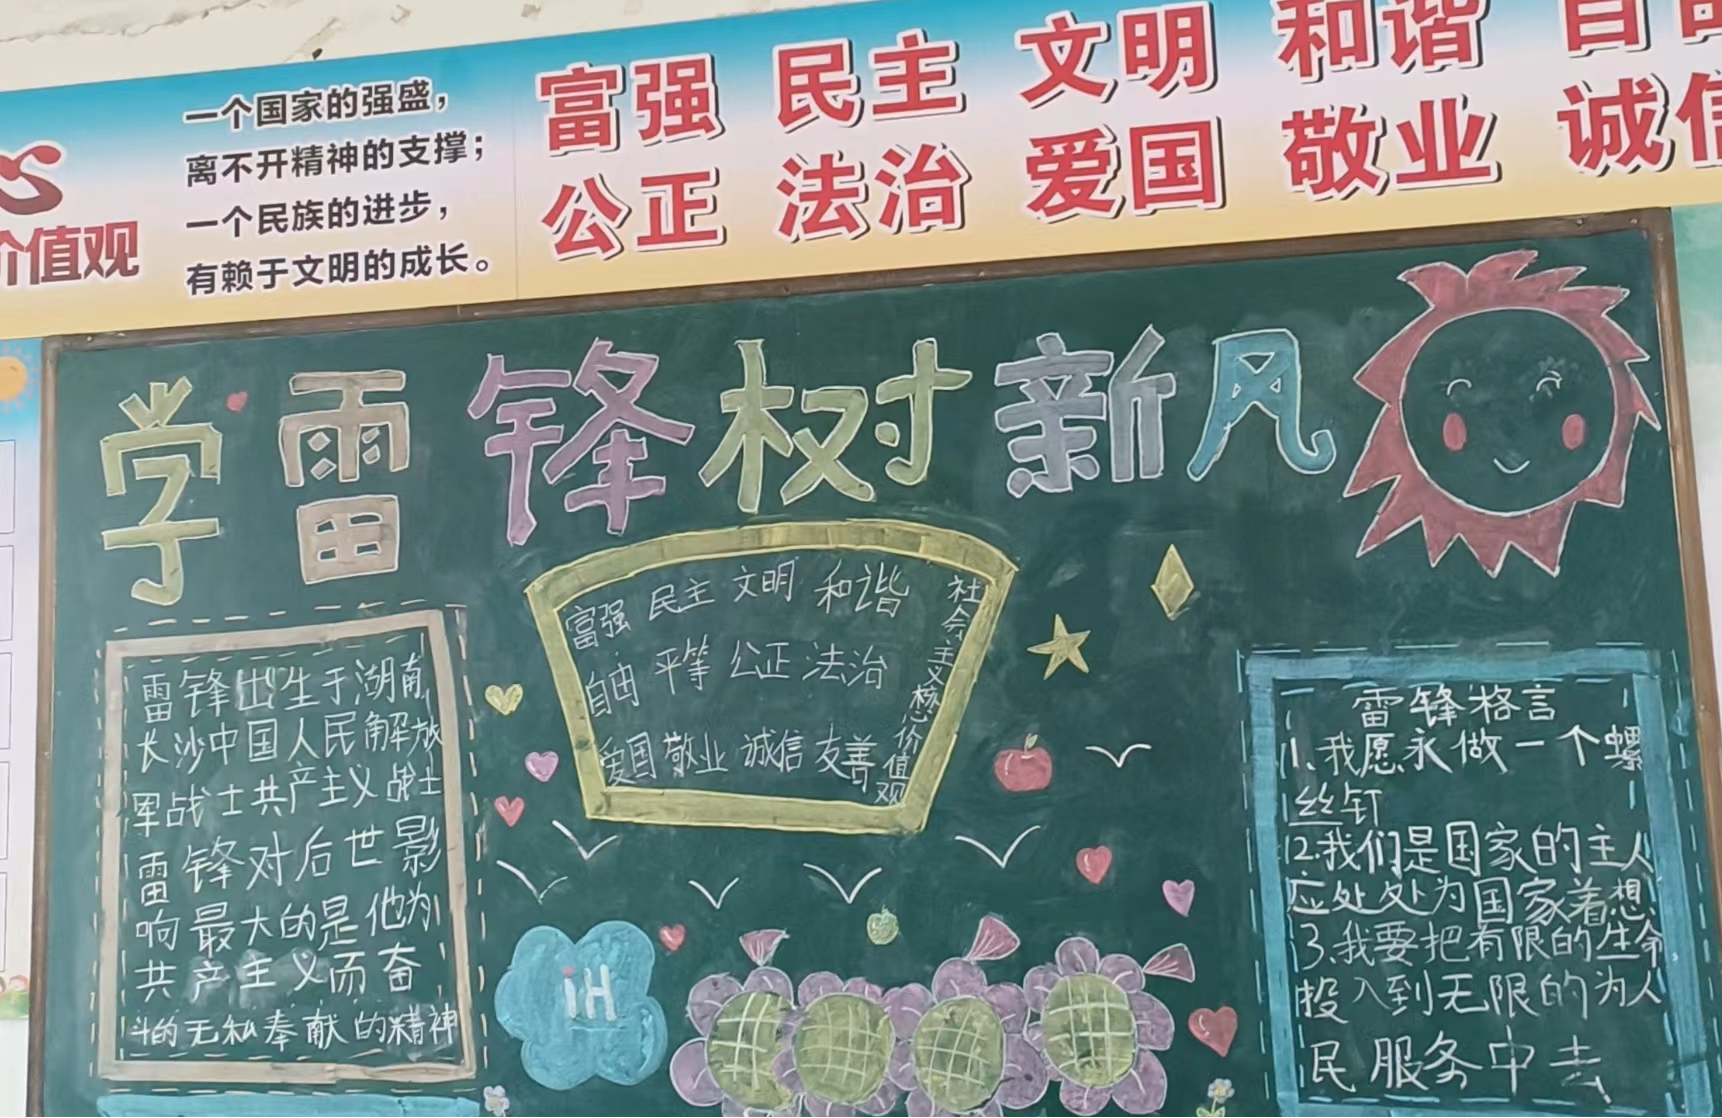 价值观
一个国家的强盛，
离不开精神的支撑；
一个民族的进步，
有赖于文明的成长。
富强 民主 文明 和谐 自由
公正 法治 爱国 敬业 诚信
学雷锋树新风
雷锋出生于湖南
长沙中国人民解放
军战士共产主义战士
雷锋对后世影
响最大的是他为
共产主义而奋
斗的无私奉献的精神
富强 民主 文明 和谐
自由 平等 公正 法治
爱国 敬业 诚信 友善
社会主义核心价值观
iH
雷锋格言
1.我愿永做一个螺
丝钉
2.我们是国家的主人
应处处为国家着想
3.我要把有限的生命
投入到无限的为人
民服务中去